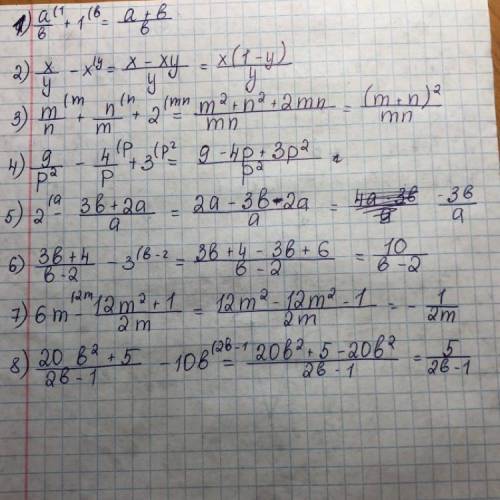 1) a/в (1 + 1 (в = a + в / в
2) x/y - x (y = x - xy / y = x(1-y) / y
3) m/n (m + n/m (n + 2 (mn = m² + n² + 2mn / mn = (m+n)² / mn
4) 9/p² - 4/p (p + 3 (p² = 9 - 4p + 3p² / p²
5) 2 (a - 3в + 2a / a = 2a - 3в - 2a / a = -3в / a
6) 3в + 4 / в - 2 - 3 (в - 2 = 3в + 4 - 3в + 6 / в - 2 = 10 / в - 2
7) 6m (2m - 12m² + 1 / 2m = 12m² - 12m² - 1 / 2m = - 1 / 2m
8) 20 в² + 5 / 2в - 1 - 10в (2в - 1 = 20в² + 5 - 20в² / 2в - 1 = 5 / 2в - 1